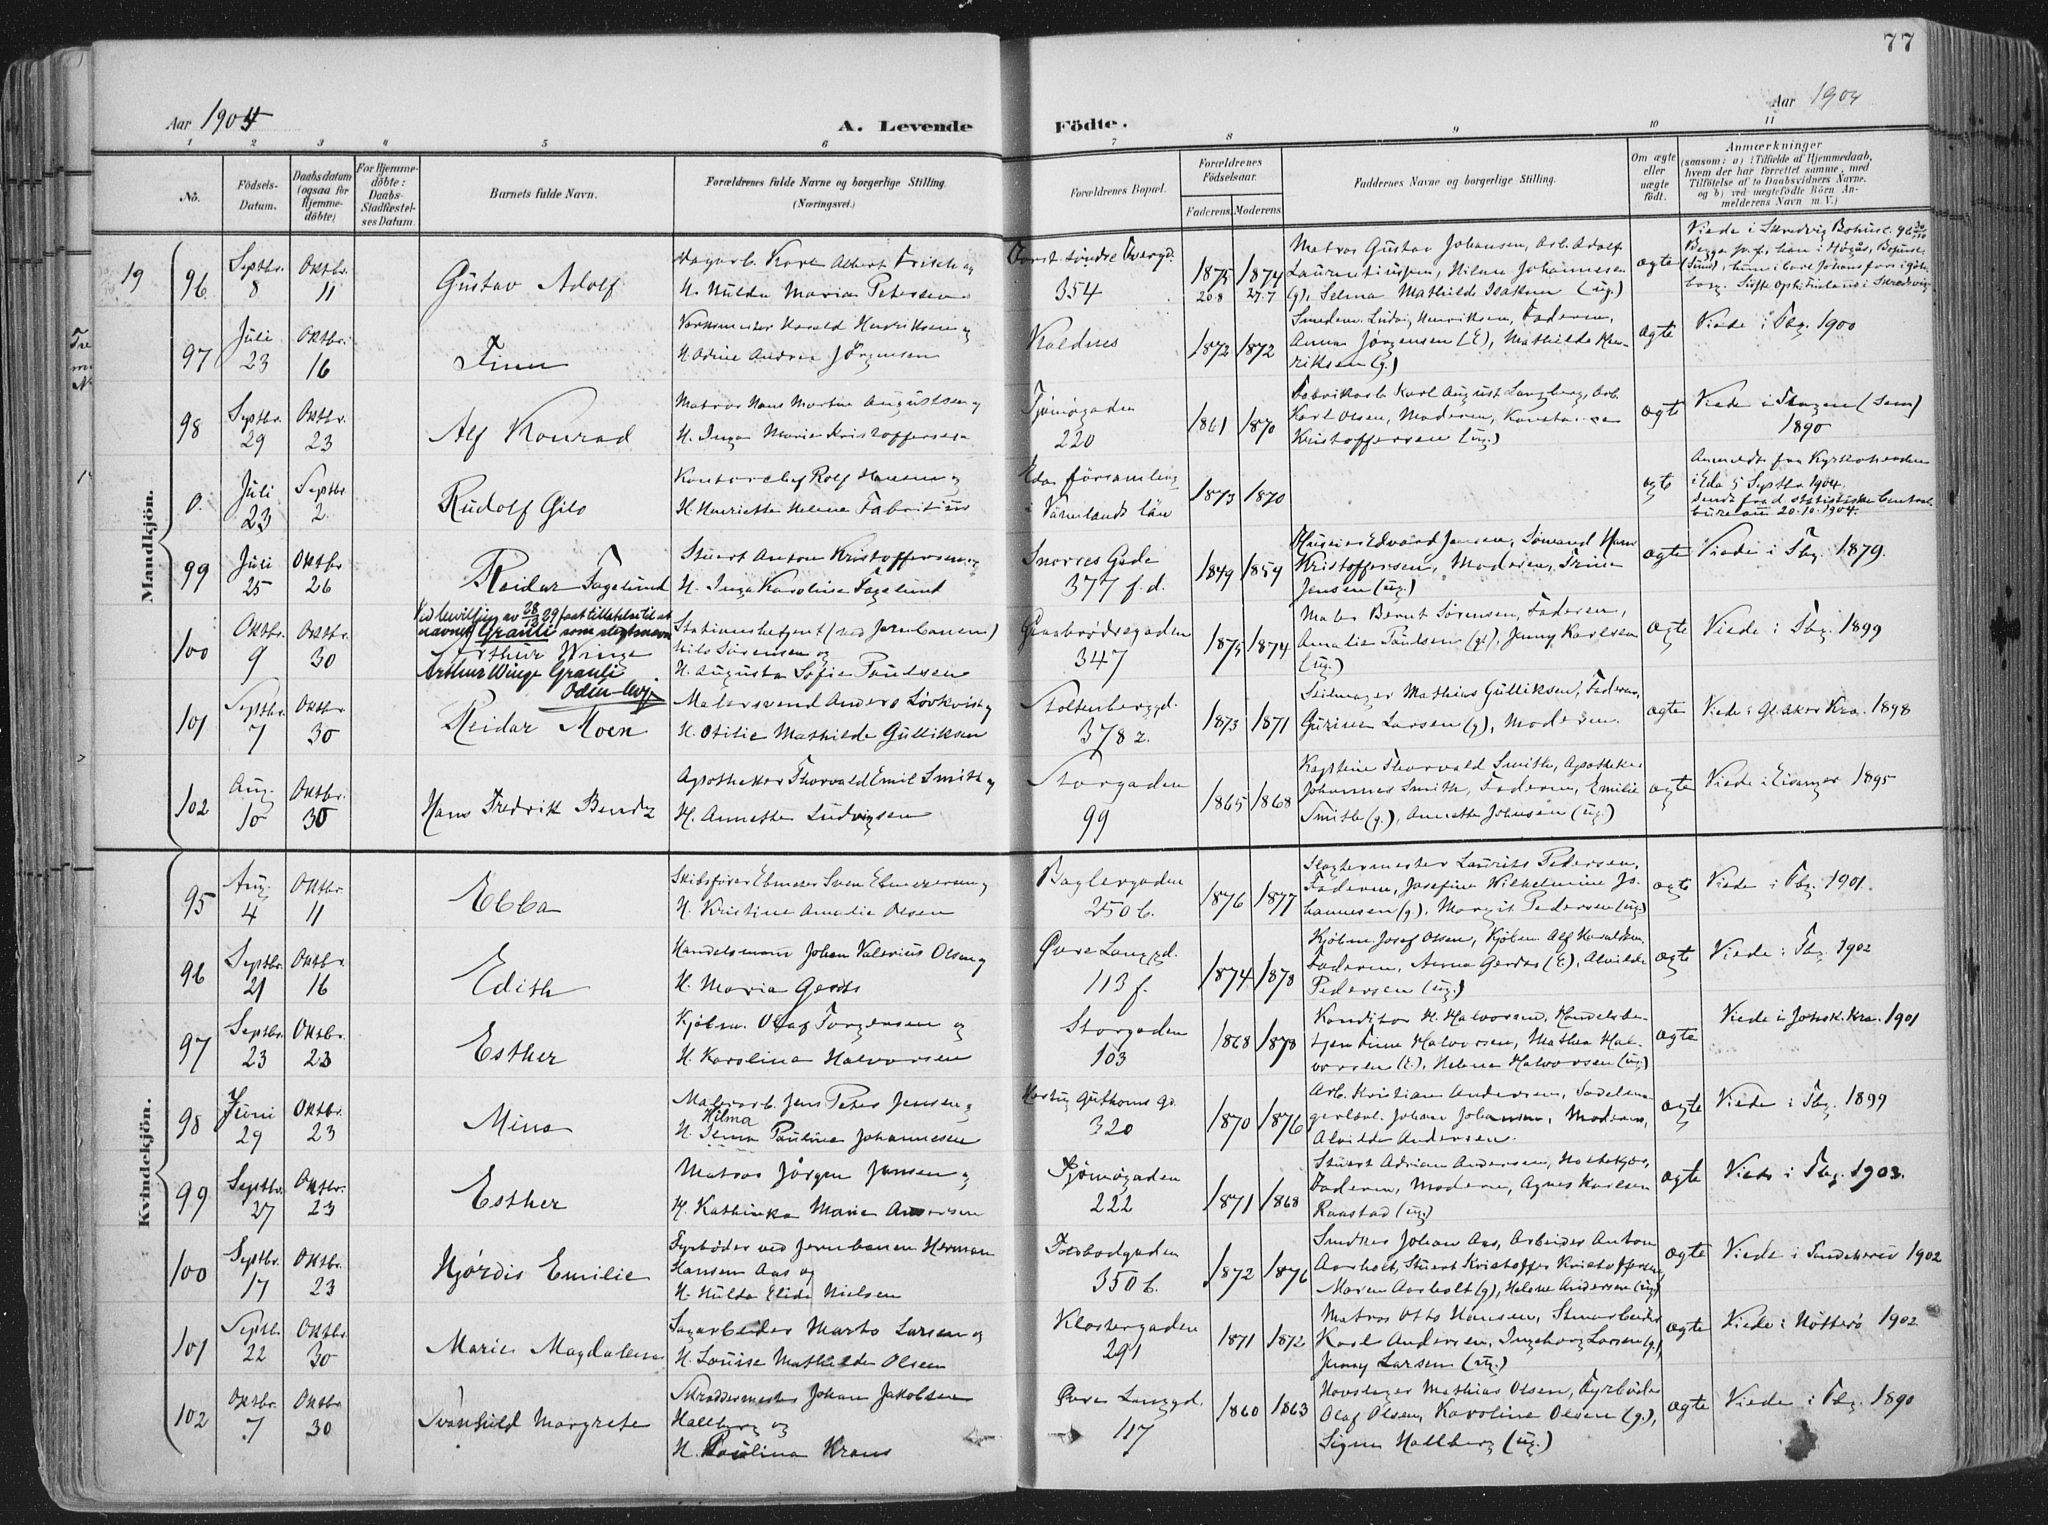 77
Aar 1904
A. Levende
Födte.
Aar 1904
1 2 3 4 5 6 7 8 9 10 11
No.
Födsels-
Datum.
Daabsdatum
(ogsaa for
Hjemme-
döbte)
For Hjemme-
döbte:
Daabs-
Stadfæstel-
ses Datum.
Barnets fulde Navn.
Forældrenes fulde Navne og borgerlige Stilling.
(Næringsvei.)
Forældrenes Bopæl.
Forældrenes
Födselsaar.
Faderens. Moderens.
Faddernes Navne og borgerlige Stilling.
Om ægte
eller
uægte
födt.
Anmærkninger
(saasom: a) i Tilfælde af Hjemmedaab,
hvem der har forrettet samme, med
Tilföielse af to Daabsvidners Navne,
og b) ved uægtefödte Börn An-
melderens Navn m. V.)
Mandkjön.
19
96
Septbr. 8
Oktbr. 11
Gustav Adolf
Karl Albert Frisch og
H. Hulda Maria Petersen
354
1875 20.8
1874 27.7
Matros Gustav Johansen, Arb. Adolf
Laurentiussen, Hilma Johannesen
(g), Selma Mathilde Isaksen (ug.)
ægte
97
Juli 23
Oktbr. 16
Finn
Værksmester Harald Henriksen og
H. Odine Andrea Jörgensen
Kaldnes
1872
1872
Smedem. Ludv. Henriksen, Faderen,
Anna Jörgensen (E), Mathilde Hen-
riksen (g.)
ægte
Viede i Tbg. 1900
98
Septbr. 29
Oktbr. 23
Alf Konrad
Matros Hans Martin Augustsen og
H. Inga Marie Kristoffersen
Tjömögaden
220
1861
1870
Fabrikarb. Karl August Langberg, Arb.
Karl Olsen, Moderen,
Kristoffersen (ug.)
ægte
Viede i (Sem)
1890
0.
Juli 23
Septbr 2.
Rudolf Gilo
Kontorchef Rolf Hansen og
H. Henriette Helene Fabritius
Eda församling
i Värmlands län
1873
1870
ægte
Anmeldt fra Kyrkoherden
i Eda 5 Septbr. 1904,
sendt fra d. statistiske Central-
bureau 20.10.1904.
99
Juli 25
Oktbr 26
Reidar Fagelund
Stuert Anton Kristoffersen og
H. Inga Karoline Fagelund
Snorres Gade
377 f.d.
1849
1854
Edvard Jensen, Sömand Hans
Kristoffersen, Moderen, Trine
Jensen (ug.)
ægte
Viede i Tbg. 1879.
100
Oktbr 9
Oktbr 30
Ved bevilling av 28/3 29 faat tilladelse til at
navnet Grauli som slegtsnavn
Arthur Winge
Arthur Winge Grauli
Stationsbetjent (ved Jernbanen)
Nils Sörensen og
H. Augusta Sofie Paulsen
Graabrödregaden
347
1875
1874
Mal. Bernt Sörensen, Faderen,
Amalie Paulsen (g), Jenny Karlsen
(ug.)
ægte
Viede i Tbg. 1899
101
Septbr. 7
Oktbr. 30
Reidar Moen
Malersvend Anders Lövkvist og
H. Otilie Mathilde Gulliksen
Stoltenberggd.
378 2.
1873
1871
Seilmager Mathias Gulliksen, Faderen,
Gurine Larsen (g), Moderen.
ægte
Viede i Kra. 1898
102
Aug. 10
Oktbr. 30
Hans Fredrik Bendz
Apotheker Thorvald Emil Smith og
H. Annette Ludvigsen
Storgaden
99
1865
1868
Kaptein Thorvald Smith, Apotheker
Johannes Smith, Faderen, Emilie
Smith (g.), Annette Johnsen (ug.)
ægte
Viede i Eidanger 1895
Kvindekjön.
95
Aug. 4
Oktbr 11
Ebba
Skibsförer Ebenezer Sven Ebenezersen og
H. Kristine Amalie Olsen
Baglergaden
250 b.
1876
1877
Slagtermester Laurits Pedersen,
Faderen, Josefine Wilhelmine Jo-
hannesen (g), Margit Pedersen (ug)
ægte
Viede i Tbg. 1901.
96
Septbr. 21
Oktbr. 16
Edith
Handelsmann Johan Valerius Olsen og
H. Maria Gerdts
Övre Langgd.
113 f.
1874
1878
Kjöbm. Josef Olsen, Kjöbm. Alf Haraldsen,
Faderen, Anna Gerdts (E), Alvilde
Pedersen (ug.)
ægte
Viede i Tbg. 1902
97
Septbr. 23
Oktbr. 23
Esther
Kjöbm. Olaf Torgersen og
H. Karoline Halvorsen
Storgaden
103
1868
1878
Konditor H. Halvorsen, Handelsbe-
tjent Halvorsen, Mathea Hal-
vorsen (E), Helene Halvorsen (ug)
ægte
Viede i Johsk. Kra. 1901
98
Juni 29
Oktbr. 23
Mina
Malerarb. Jens Peter Jensen og
Hilma
H. Jenna Pauline Johannesen
Hertug Guthorms Gd.
320
1870
1876
Arb. Kristian Andersen, Sadelma-
gersv. Johan Johansen, Moderen,
Alvilde Andersen.
ægte
Viede i Tbg. 1899
99
Septbr. 27
Oktbr. 23
Esther
Matros Jörgen Jensen og
H. Kathinka Marie Andersen
Tjömögaden
222
1871
1868
Stuert Adrian Andersen,
Faderen, Moderen, Agnes Karlsen
Raastad (ug.)
ægte
Viede i Tbg. 1903.
100
Septbr. 17
Oktbr. 23
Hjördis Emilie
Fyrböder ved Jernbanen Herman
Hansen Aas og
H. Hulda Elida Nielsen
Fodbodgaden
350 b.
1872
1876
Smed Johan Aas, Arbeider Anton
Aasholt, Stuert Kristoffer Kristoffersen
Maren Aasholt (g), Helene Andersen (ug)
ægte
Viede i Sandeherred 1902
101
Septbr. 22
Oktbr. 30
Marie Magdalene
Sagarbeider Larsen og
H. Louise Mathilde Olsen
Klostergaden
291
1871
1872
Matros Otto Hansen, Stuearbeider
Karl Andersen, Ingeborg Larsen (g.),
Jenny Larsen (ug.)
ægte
Viede i Nötterö 1902
102
Oktbr. 7
Oktbr. 30
Svanhild Margrete
Skræddermester Johan Jakobsen
Hallberg og
H. Paulina Krans
Övre Langgd.
117
1860
1863
Hovslager Mathias Olsen, Fyrböder
Olaf Olsen, Karoline Olsen (g.),
Signe Hallberg (ug.)
ægte
Viede i Tbg. 1890